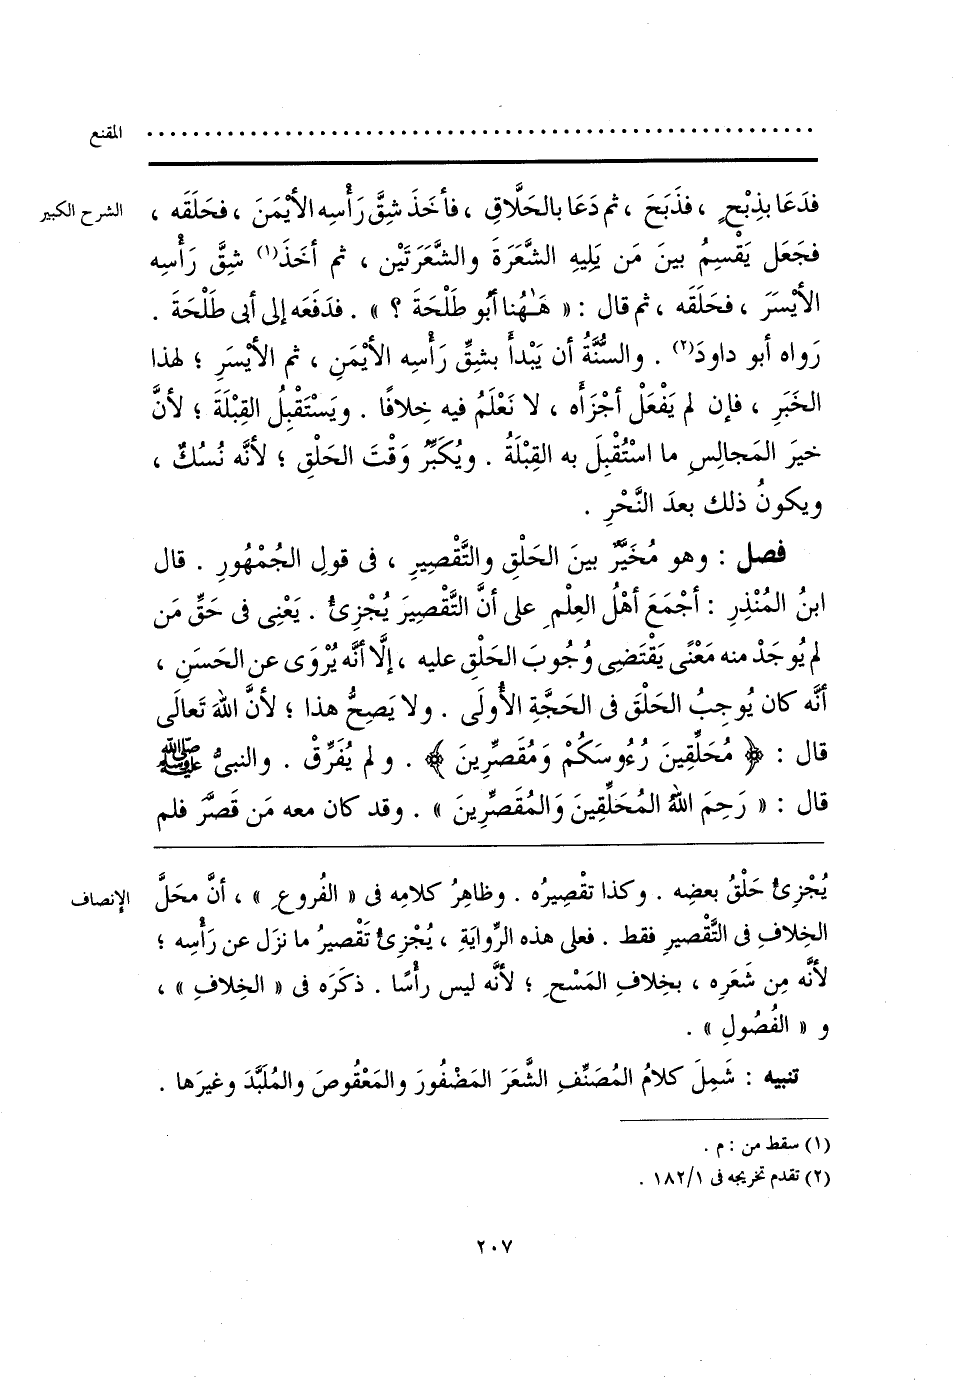 المقنع
الشرح الكبير
فدَعَا بذِبْحٍ ، فذَبَحَ ، ثم دَعَا بالحَلَّاقِ ، فأخَذَ شِقَّ رَأْسِه الأيْمَنَ ، فحَلَقَه ،
فجَعَل يَقْسِمُ بينَ مَن يَلِيهِ الشَّعَرَةَ والشَّعَرَتَيْن ، ثم أخَذَ(١) شِقَّ رَأْسِه
الأيْسَرَ ، فحَلَقَه ، ثم قال : « هَـٰهُنا أبُو طَلْحَةَ ؟ » . فدَفَعَه إلى أبى طَلْحَةَ .
رَواه أبو داودَ(٢) . والسُّنَّةُ أن يَبْدأَ بشِقِّ رَأْسِه الأيْمَنِ ، ثم الأيْسَرِ ؛ لهذا
الخَبَرِ ، فإن لم يَفْعَلْ أجْزَأَه ، لا نَعْلَمُ فيه خِلافًا . ويَسْتَقْبِلُ القِبْلَةَ ؛ لأنَّ
خيرَ المَجالِسِ ما اسْتُقْبِلَ به القِبْلَةُ . ويُكَبِّرُ وَقْتَ الحَلْقِ ؛ لأنَّه نُسُكٌ ،
ويكونُ ذلك بعدَ النَّحْرِ .
فصل : وهو مُخَيَّرٌ بينَ الحَلْقِ والتَّقْصِيرِ ، فى قولِ الجُمْهُورِ . قال
ابنُ المُنْذِرِ : أجْمَعَ أهْلُ العِلْمِ على أنَّ التَّقْصِيرَ يُجْزِئُ . يَعْنِى فى حَقِّ مَن
لم يُوجَدْ منه مَعْنًى يَقْتَضِى وُجُوبَ الحَلْقِ عليه ، إلَّا أنَّه يُرْوَى عن الحَسَنِ ،
أنَّه كان يُوجِبُ الحَلْقَ فى الحَجَّةِ الأُولَى . ولا يَصِحُّ هذا ؛ لأنَّ اللهَ تَعالَى
قال : ﴿ مُحَلِّقِينَ رُءُوسَكُمْ وَمُقَصِّرِينَ ﴾ . ولم يُفَرِّقْ . والنبىُّ ﷺ
قال : « رَحِمَ اللهُ المُحَلِّقِينَ وَالمُقَصِّرِينَ » . وقد كان معه مَن قَصَّرَ فلم
الإنصاف
يُجْزِئُ حَلْقُ بعضِه . وكذا تقْصِيرُه . وظاهِرُ كلامِه فى « الفُروعِ » ، أنَّ محَلَّ
الخِلافِ فى التَّقْصيرِ فقط . فعلى هذه الرِّوايَةِ ، يُجْزِئُ تَقْصيرُ ما نزَل عن رَأْسِه ؛
لأنَّه مِن شَعَرِه ، بخِلافِ المَسْحِ ؛ لأنَّه ليس رأْسًا . ذكَرَه فى « الخِلافِ » ،
و « الفُصُولِ » .
تنبيه : شَمِلَ كلامُ المُصَنِّفِ الشَّعَرَ المَضْفُورَ والمَعْقُوصَ والمُلَبَّدَ وغيرَها .
(١) سقط من : م .
(٢) تقدم تخريجه فى ١٨٢/١ .
٢٠٧